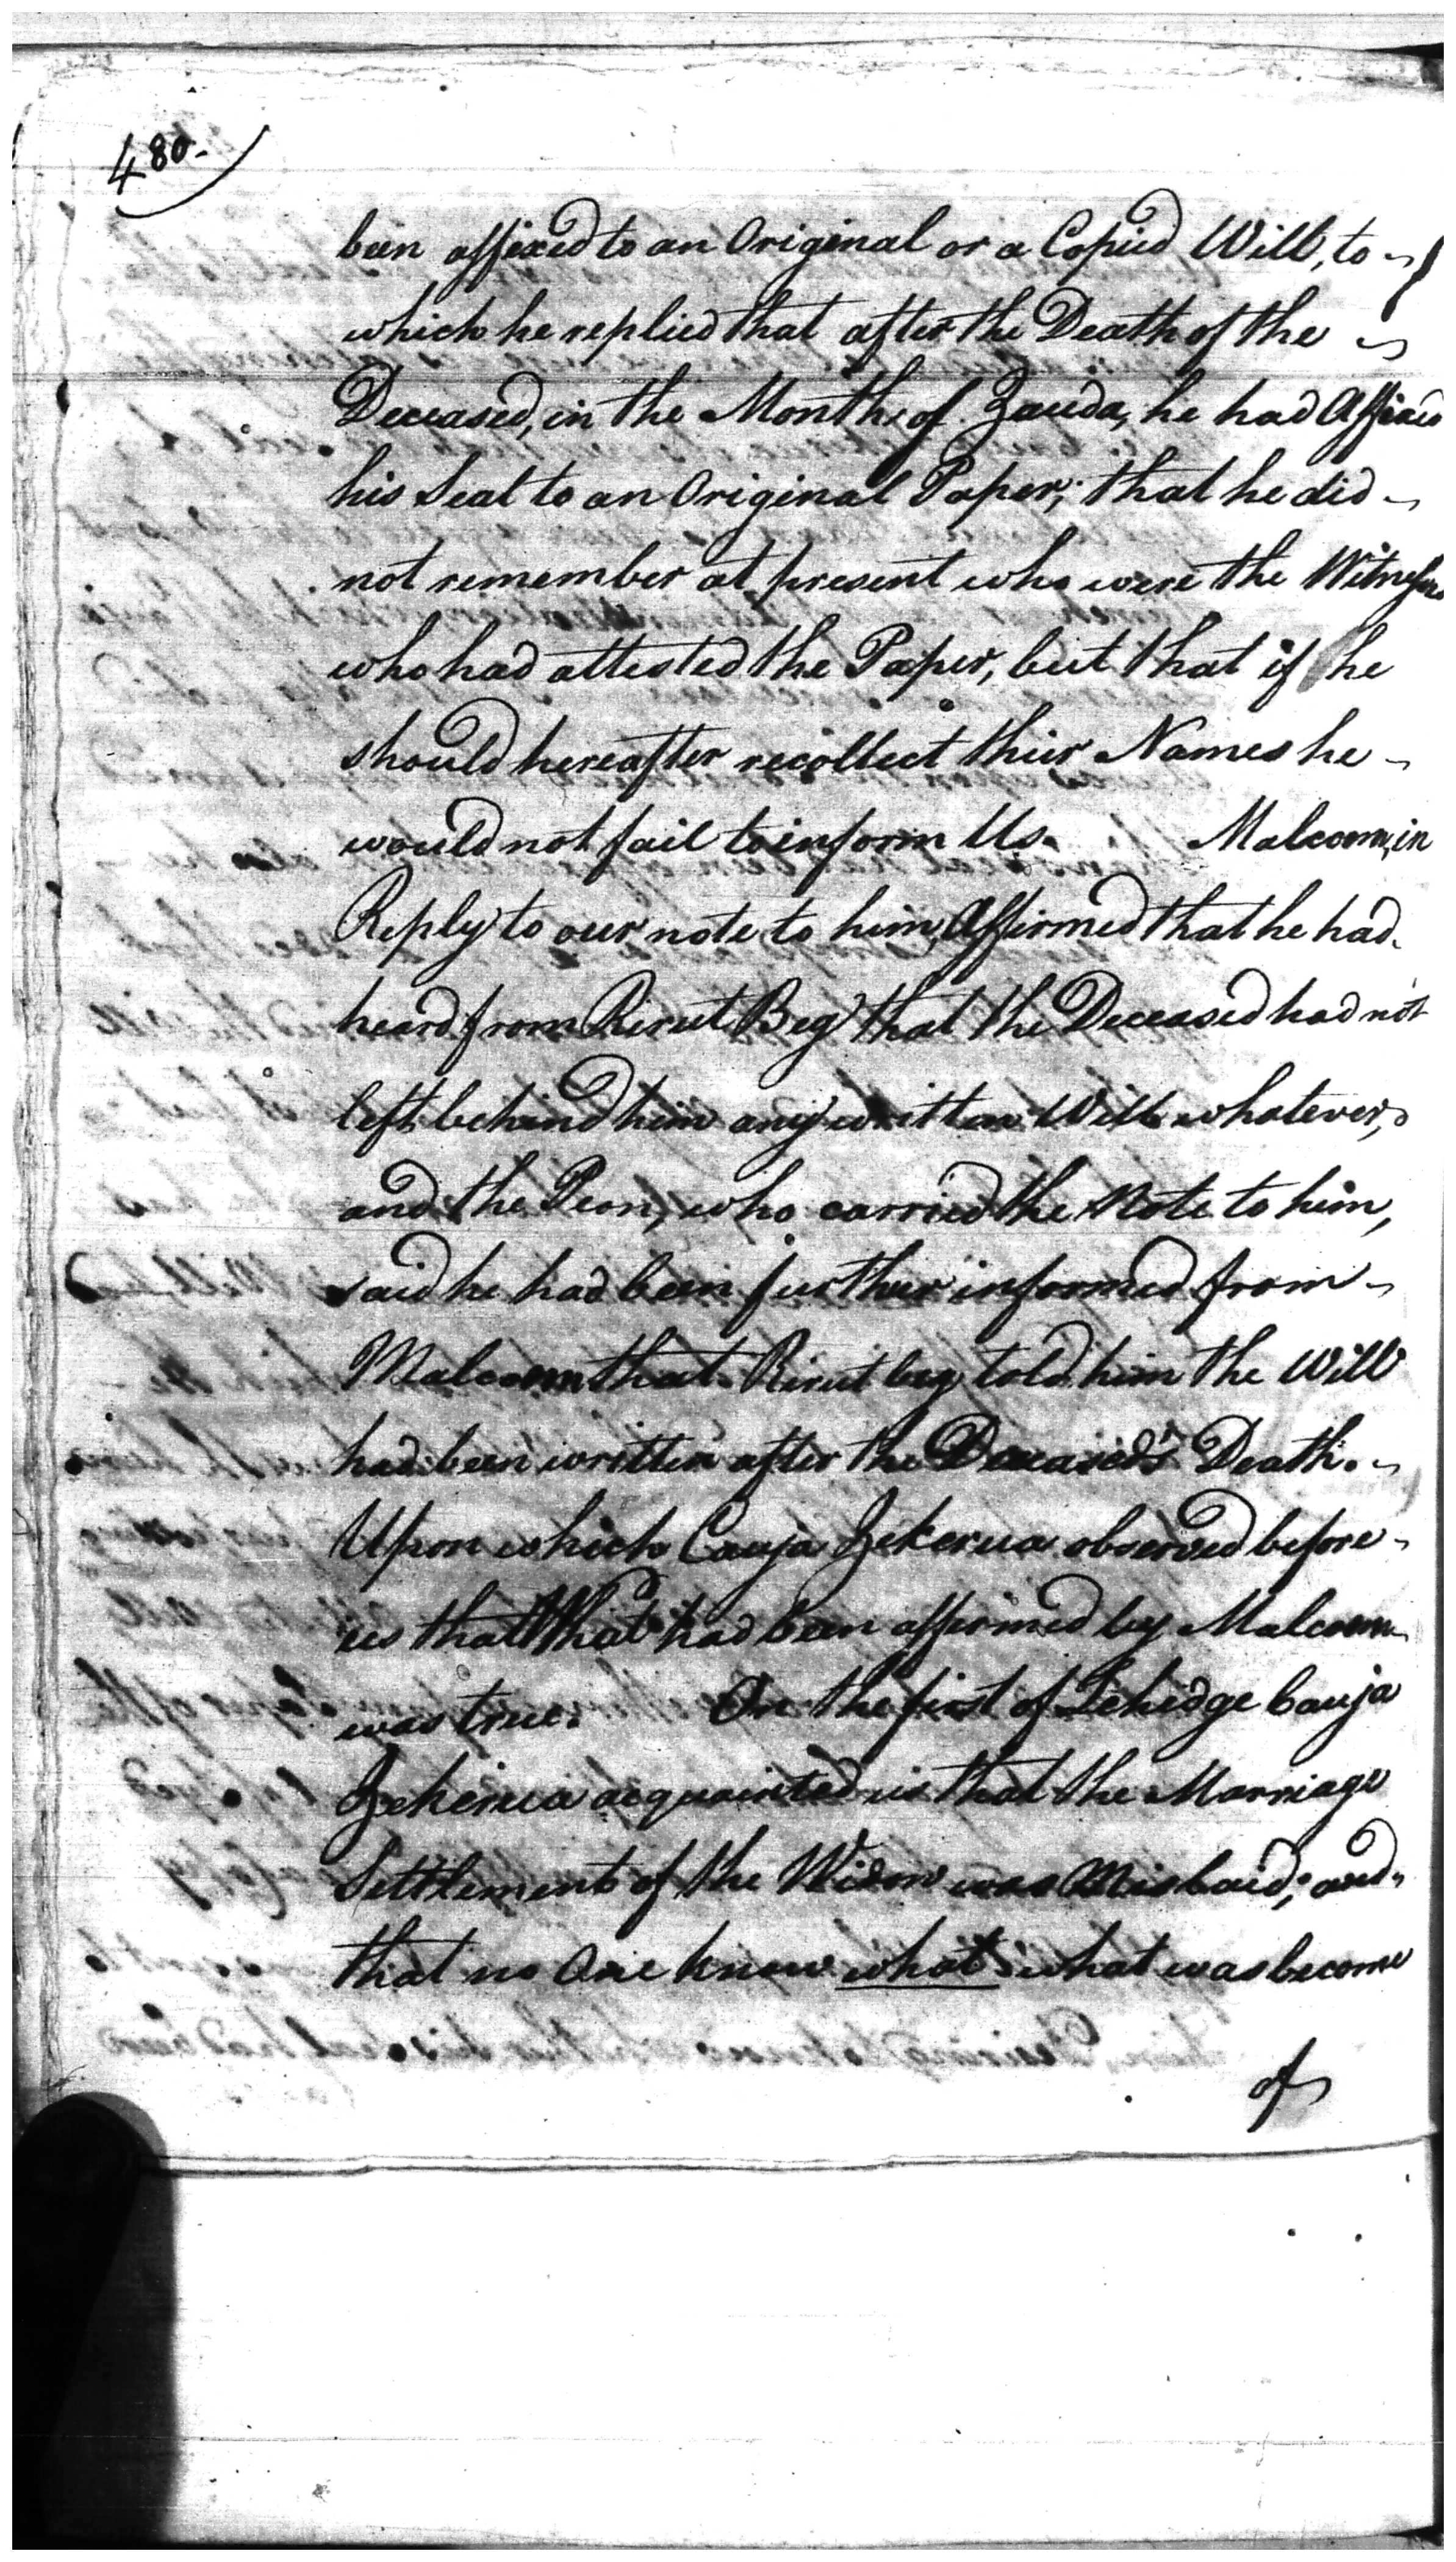 480.
been affixed to an Original or a Copied Will, to
which he replied that after the Death of the
Deceased, in the Month of Zauda, he had Affixed
his Seal to an Original Paper; that he did
not remember at present who were the Witnesses
who had attested the Paper, but that if he
should hereafter recollect their Names he
would not fail to inform Us. Malcom, in
Reply to our note to him, Affirmed that he had
heard from Rirut Beg that the Deceased had not
left behind him any written Will whatever,
and the Peon, who carried the Note to him,
said he had been further informed from
Malcom that Rirut beg told him the Will
had been written after the Deceased's Death.
Upon which Cauja Zekerua observed before
us that What had been affirmed by Malcom
was true. On the first of Zehidge Cauja
Zekerua acquainted us that the Marriage
Settlement of the Widow was Mislaid; and
that no One knew what what was become
of